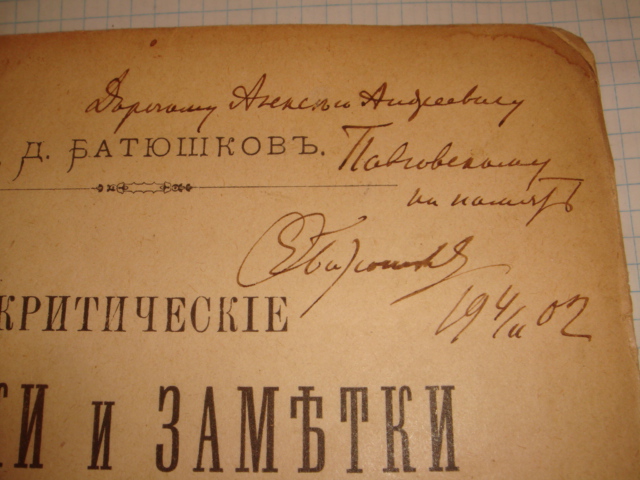 Дорогому Алексѣю Андреевичу
. Д. БАТЮШКОВЪ.
Павловскому
на память
Ѳ Батюшковъ
КРИТИЧЕСКІЕ
19 4/II 02
КИ и ЗАМѢТКИ